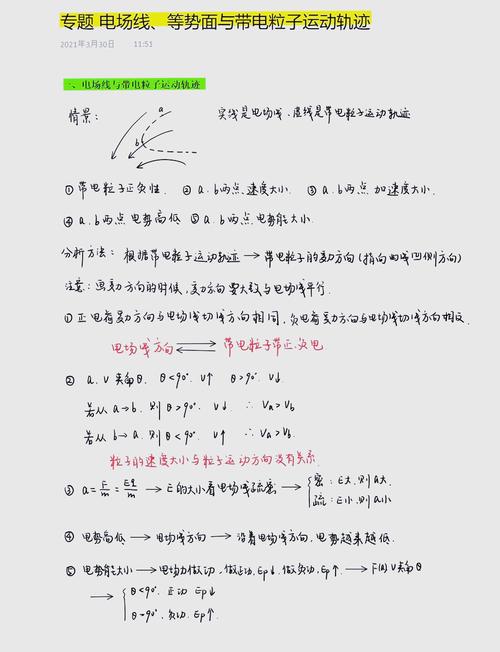 专题 电场线、等势面与带电粒子运动轨迹
2021年3月30日 11:51
一、电场线与带电粒子运动轨迹
情景： a b 实线是电场线、虚线是带电粒子运动轨迹
①带电粒子正负性. ② a.b两点.速度大小. ③ a.b两点 加速度大小.
④ a.b两点电势高低 ⑤ a.b两点电势能大小.
分析方法：根据带电粒子运动轨迹→带电粒子的受力方向(指向曲线凹侧方向)
注意：画受力方向的时候，受力方向要大致与电场线平行.
①正电荷受力方向与电场线切线方向相同，负电荷受力方向与电场线切线方向相反.
电场线方向 ⇌ 带电粒子带正、负电
② a.v夹角θ. θ<90°. v↑ θ>90°. v↓.
若从 a→b. 则 θ>90°. v↓. ∴ Va>Vb
若从 b→a. 则 θ<90°. v↑. ∴ Va>Vb.
粒子的速度大小与粒子运动方向没有关系.
③ a=F/m=Eq/m → E的大小看电场线疏密 → { 密：E大.则a大.
疏：E小.则a小
④ 电势高低→电场线方向→沿着电场线方向，电势越来越低.
⑤ 电势能大小→电场力做功，做正功.Ep↓.做负功.Ep↑.→F(a) v夹角θ
→ { θ<90°. 正功 Ep↓
θ>90°. 负功. Ep↑.